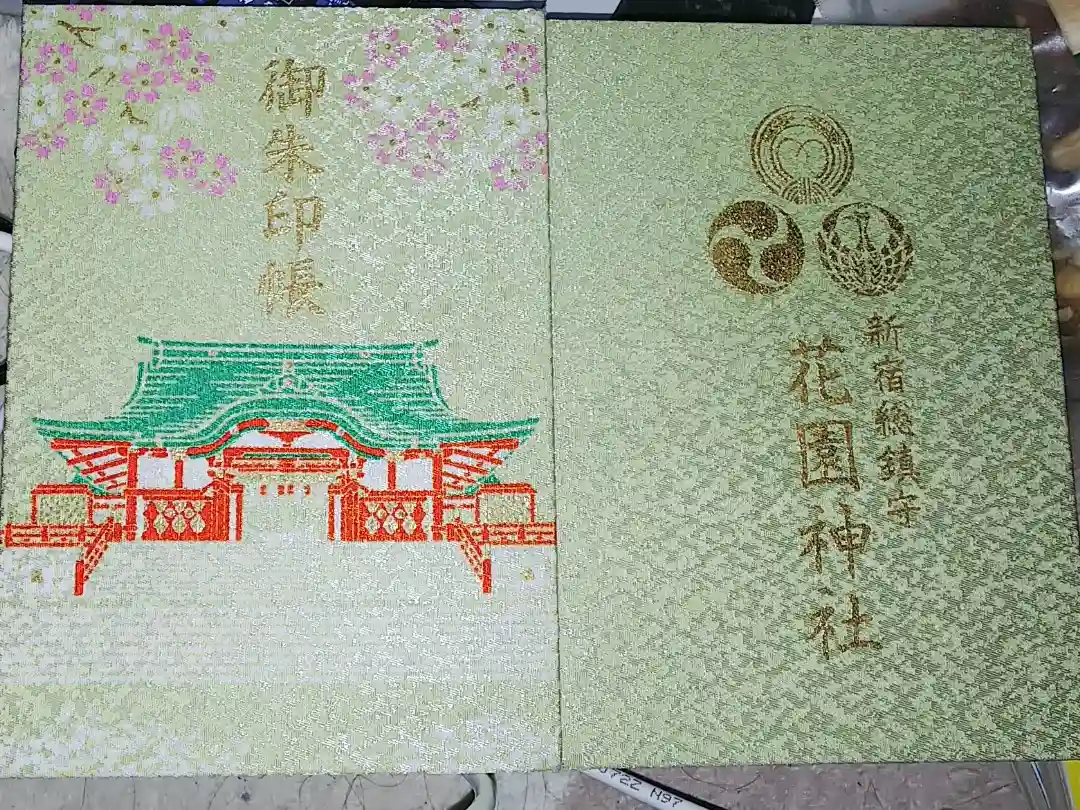 御朱印帳
新宿總鎮守
花園神社